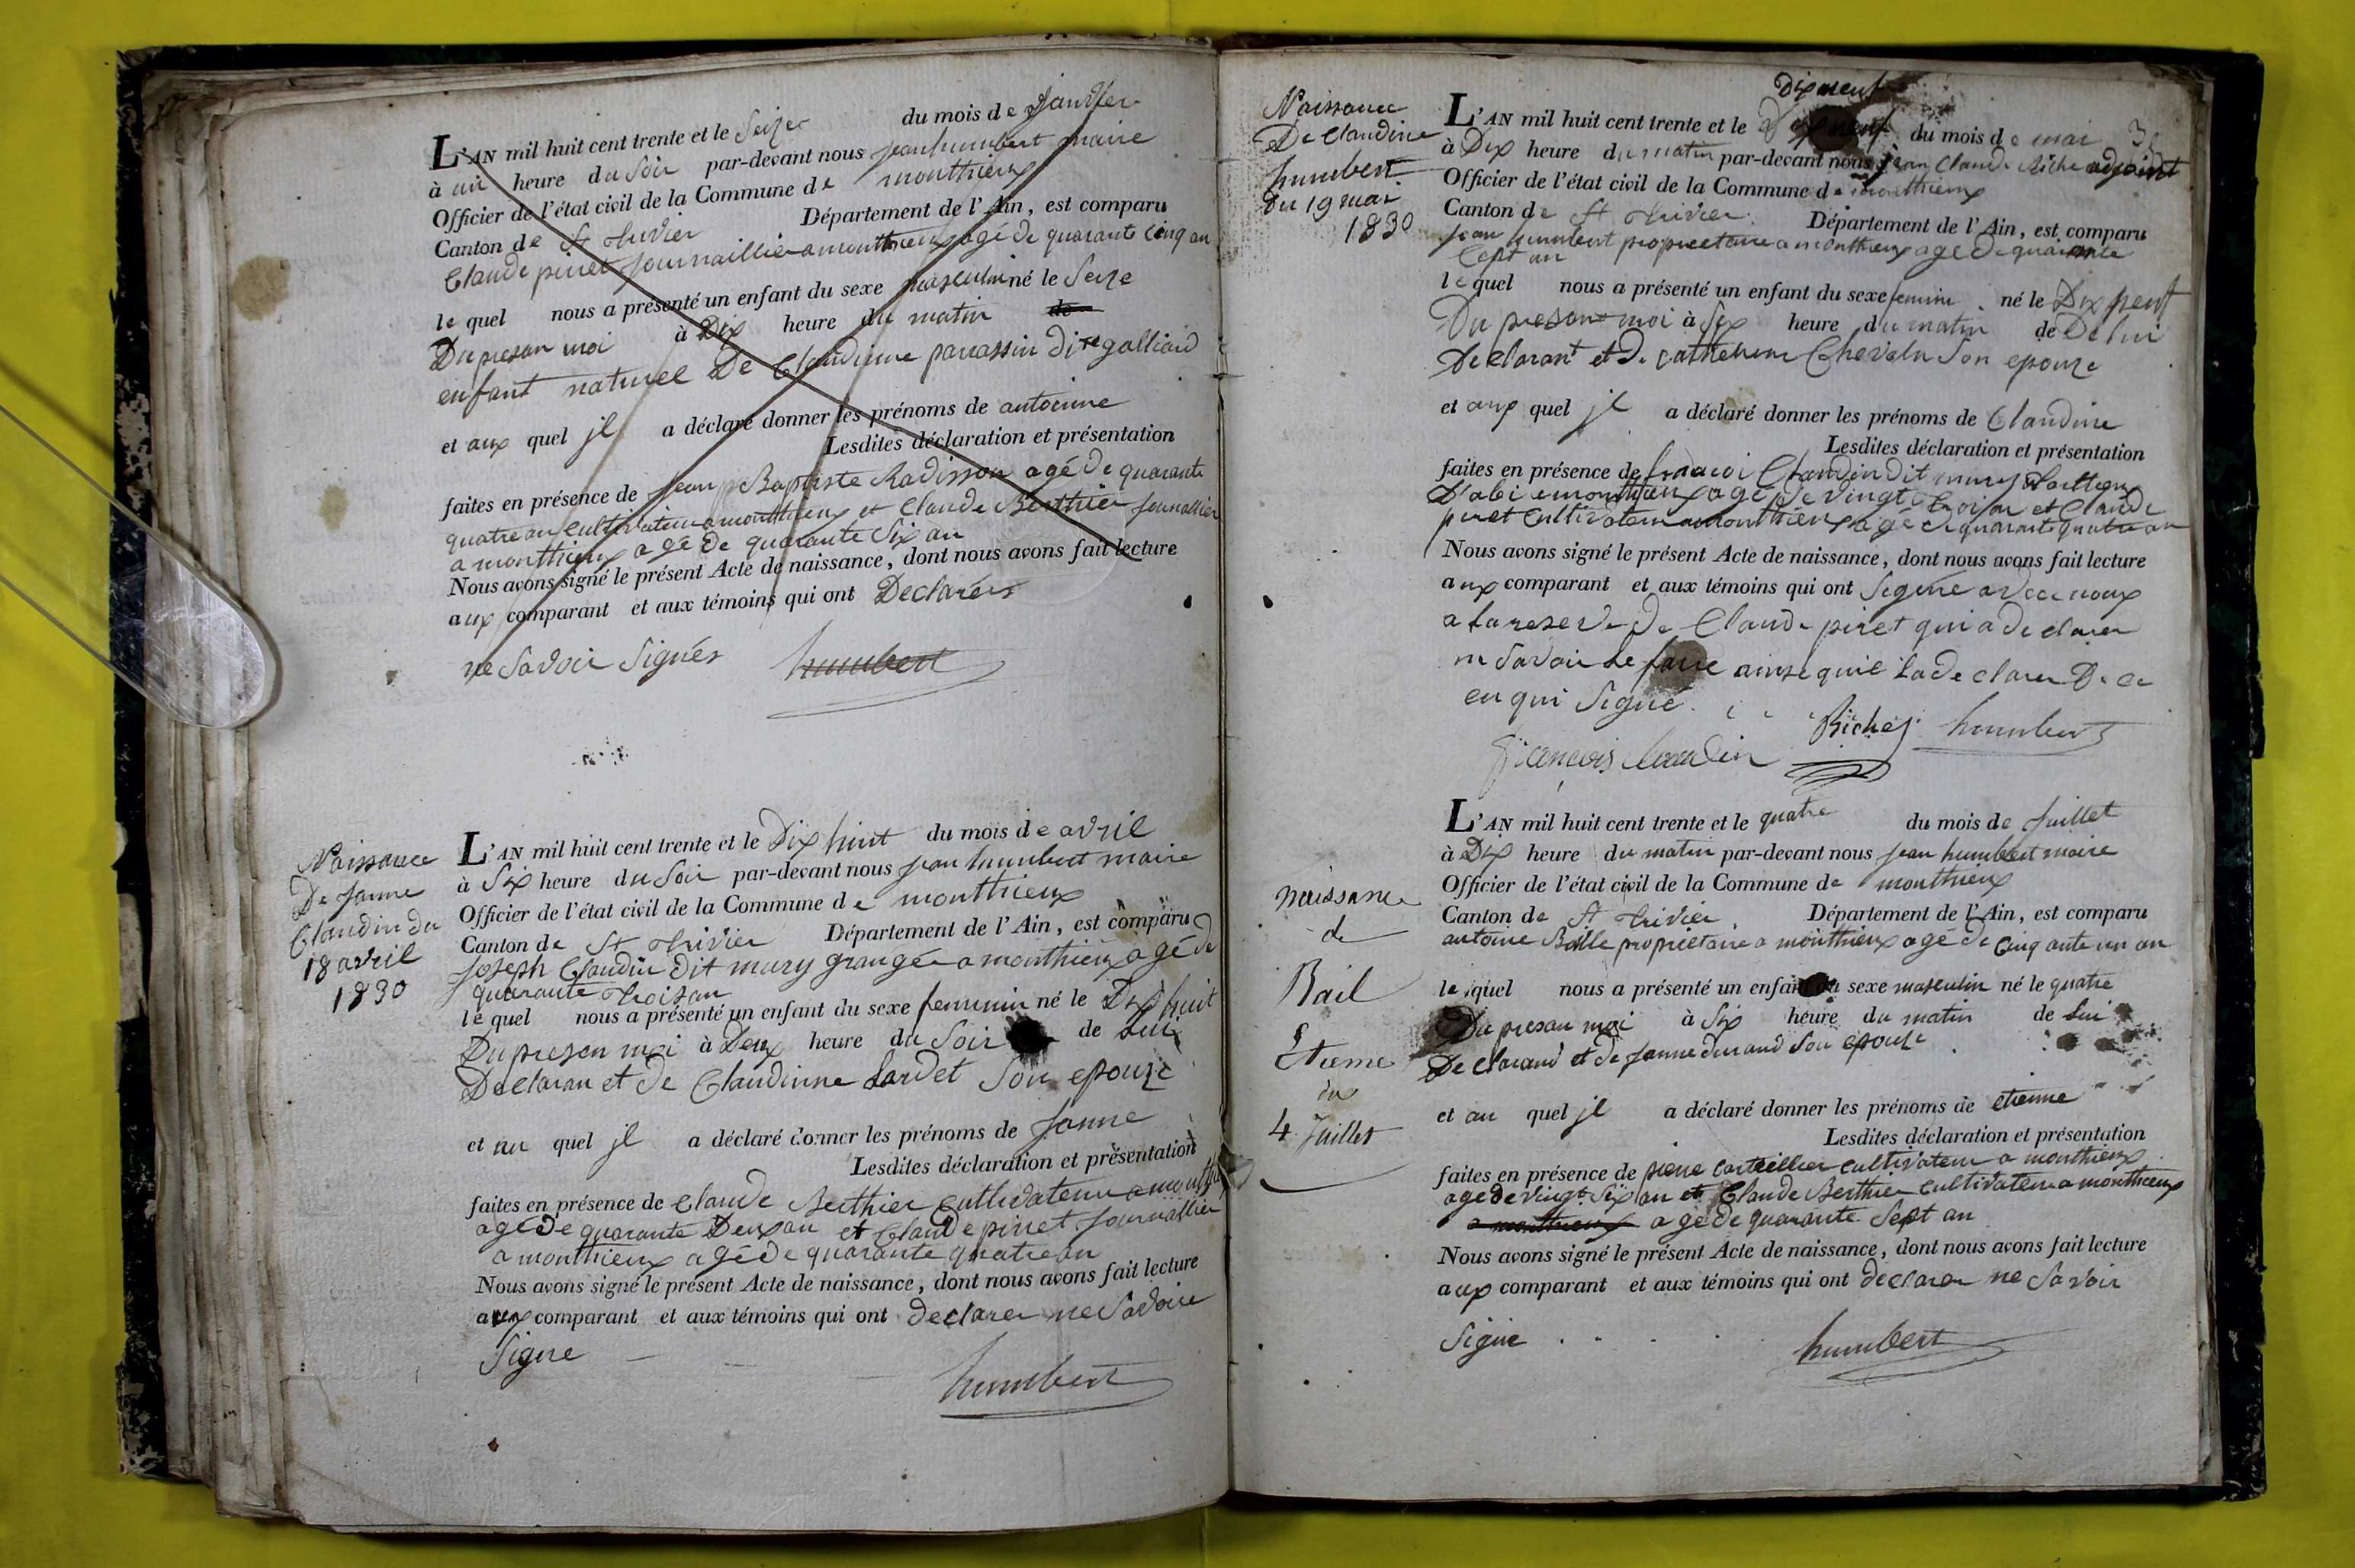 L'AN mil huit cent trente et le Seizes du mois de Janvier
à un heure du Soir par-devant nous jean humbert maire
Officier de l'état civil de la Commune de monthieux
Canton de St trivier Département de l'Ain, est comparu
Claude pinet journaillier a monthieux agé de quarante cinq an
le quel nous a présenté un enfant du sexe masculin né le Seize
Du presan moi à Dix heure du matin de
enfant naturel De Claudinne parrassin dite galliard
et aux quel jl a déclaré donner les prénoms de antoinne
Lesdites déclaration et présentation
faites en présence de jean Baptiste Radisson agé de quarante
quatre an cultivateur a monthieux et Claude Berthier journallier
a monthieux agé de quarante Six an
Nous avons signé le présent Acte de naissance, dont nous avons fait lecture
aux comparant et aux témoins qui ont Declarér
ne Savoir Signér humbert
Naissance
De janne
Claudin du
18 avril
1830
L'AN mil huit cent trente et le Dix huit du mois de avril
à Six heure du Soir par-devant nous jean humbert maire
Officier de l'état civil de la Commune de monthieux
Canton de St trivier Département de l'Ain, est comparu
joseph Claudin dit mury grangér a monthieux agé de
quarante trois an
le quel nous a présenté un enfant du sexe feminin né le Dix huit
Du presen moi à Deux heure du Soir de Lui
Declaran et de Claudinne Lardet Son epouze
et au quel jl a déclaré donner les prénoms de janne
Lesdites déclaration et présentation
faites en présence de Claude Berthier Cultivateur a monthieux
agé de quarante Deux an et Claude pinet journallier
a monthieux agé de quarante quatre an
Nous avons signé le présent Acte de naissance, dont nous avons fait lecture
aux comparant et aux témoins qui ont declarer ne Savoire
Signe
humbert
Naissance
De Claudine
humbert
Du 19 mai
1830
Dix neuf
L'AN mil huit cent trente et le Dix neuf du mois de mai
à Dix heure du matin par-devant nous jean Claude Riche adjoint
Officier de l'état civil de la Commune de monthieux
Canton de St trivier Département de l'Ain, est comparu
jean humbert proprietaire a monthieux agé de quarante
Cept an
le quel nous a présenté un enfant du sexe feminin né le Dix neuf
Du presant moi à Six heure du matin de De lui
Declarant et de Catherine Chevalu Son epouze
et aux quel jl a déclaré donner les prénoms de Claudine
Lesdites déclaration et présentation
faites en présence de francoi Claudin dit mury
a monthieux agé de vingt trois an et Claude
pinet cultivateur a monthieux agé de quarante quatre an
Nous avons signé le présent Acte de naissance, dont nous avons fait lecture
aux comparant et aux témoins qui ont Signe avec noux
a la reserve de Claude pinet qui a declarer
ne Savoir le faire ainse quil la declarer De ce
en qui Signe
Riche humbert
François Claudin
naissance
de
Bail
Etienne
du
4 Juillet
L'AN mil huit cent trente et le quatre du mois de juillet
à Dix heure du matin par-devant nous jean humbert maire
Officier de l'état civil de la Commune de monthieux
Canton de St trivier Département de l'Ain, est comparu
antoine Balle proprietaire a monthieux agé de Cinq ante un an
le quel nous a présenté un enfant du sexe masculin né le quatre
Du presan moi à Six heure du matin de Lui
Declarand et de janne durand Son epouze
et au quel jl a déclaré donner les prénoms de etienne
Lesdites déclaration et présentation
faites en présence de pierre cultivateur a monthieux
agé de vingt Six an et Claude Berthier cultivateur a monthieux
a monthieux agé de quarante Sept an
Nous avons signé le présent Acte de naissance, dont nous avons fait lecture
aux comparant et aux témoins qui ont declarer ne Savoir
Signe
humbert